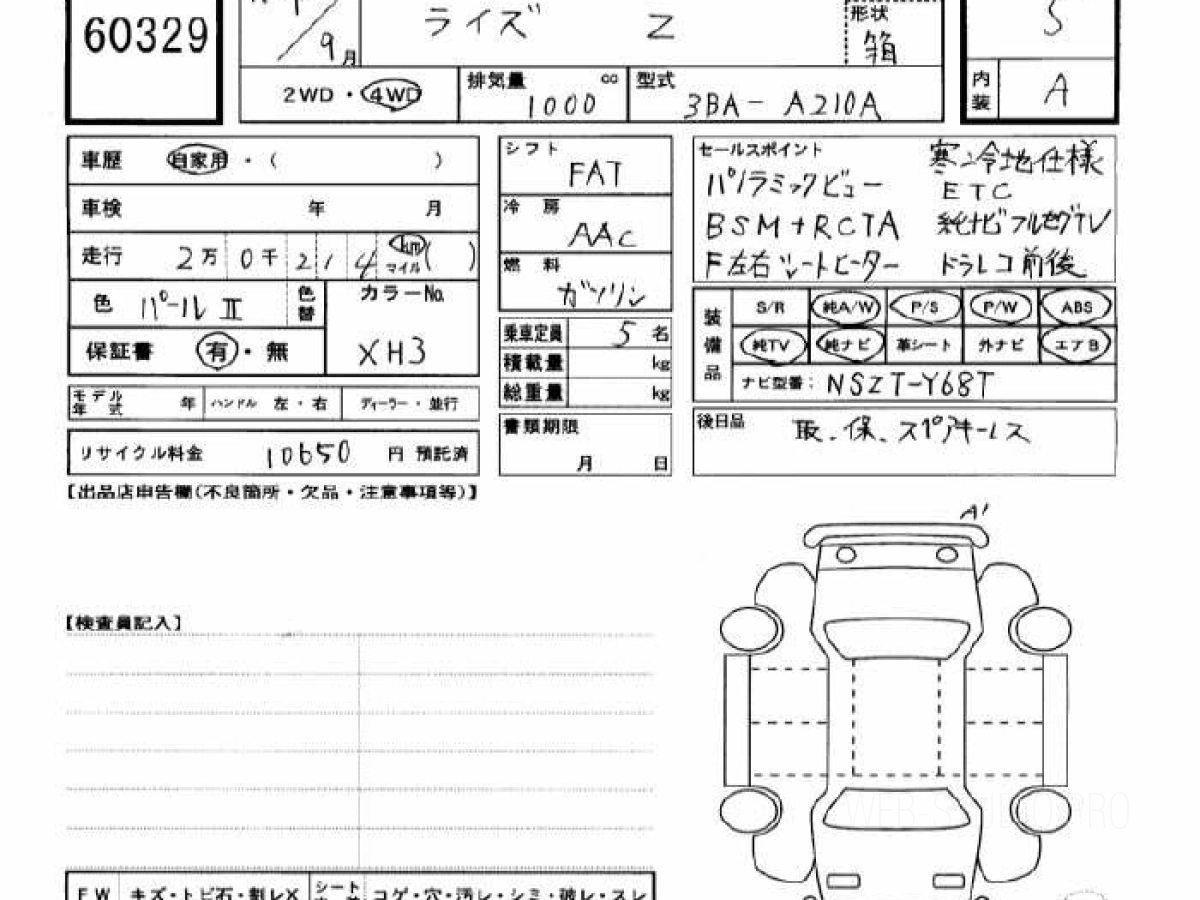 60329
9月
ライズ Z
形状
箱
S
2WD・4WD
排気量 cc
1000
型式
3BA-A210A
内装
A
車歴 自家用・( )
車検 年 月
走行 2万0千214 km マイル( )
色 パールⅡ 色替
カラーNo.
XH3
保証書 有・無
モデル年式 年 ハンドル 左・右 ディーラー・並行
リサイクル料金 10650 円 預託済
シフト
FAT
冷房
AAC
燃料
ガソリン
乗車定員 5 名
積載量 kg
総重量 kg
書類期限
月 日
セールスポイント 寒冷地仕様
パノラミックビュー ETC
BSM+RCTA 純ナビフルセグTV
F左右シートヒーター ドラレコ前後
装備品
S/R 純A/W P/S P/W ABS
純TV 純ナビ 革シート 外ナビ エアB
ナビ型番: NSZT-Y68T
後日品 取.保.スペアキーレス
【出品店申告欄(不良箇所・欠品・注意事項等)】
A1
【検査員記入】
FW キズ・トビ石・割レX シート コゲ・穴・汚レ・シミ・破レ・スレ